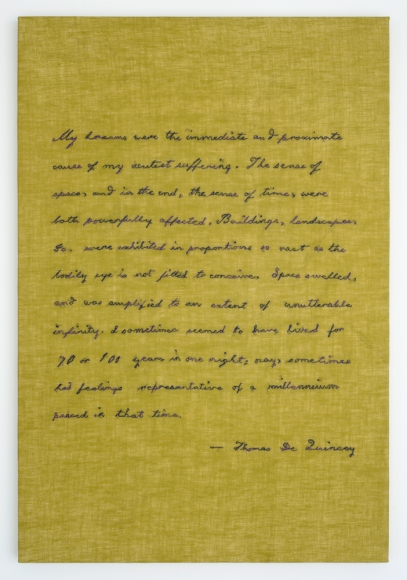 My dreams were the immediate and proximate
cause of my acutest suffering. The sense of
space, and in the end, the sense of time, were
both powerfully affected. Buildings, landscapes,
&c. were exhibited in proportions so vast as the
bodily eye is not fitted to conceive. Space swelled,
and was amplified to an extent of unutterable
infinity. I sometimes seemed to have lived for
70 or 100 years in one night; nay, sometimes
had feelings representative of a millennium
passed in that time.
— Thomas De Quincey